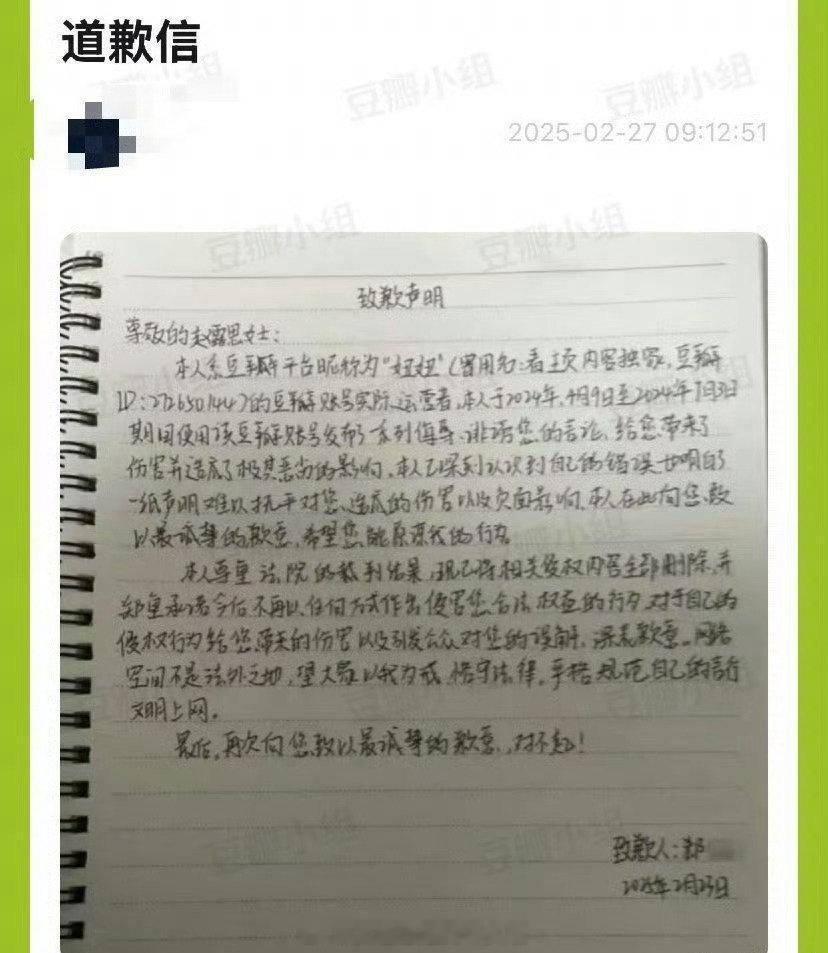 道歉信
豆瓣小组
豆瓣小组
2025-02-27 09:12:51
豆瓣小组
豆瓣小组
致歉声明
尊敬的赵露思女士：
本人系豆瓣平台昵称为"妞妞"(曾用名：看主页内容独家，豆瓣
ID:272650144)的豆瓣账号实际运营者，本人于2024年4月9日至2024年7月3日
期间使用该豆瓣账号发布了系列侮辱、诽谤您的言论，给您带来了
伤害并造成了极其恶劣的影响。本人已深刻认识到自己的错误，也明白了
一纸声明难以抚平对您造成的伤害以及负面影响，本人在此向您致
以最诚挚的歉意，希望您能原谅我的行为。
本人尊重法院的裁判结果，现已将相关侵权内容全部删除，并
郑重承诺今后不再以任何方式作出侵害您合法权益的行为。对于自己的
侵权行为给您带来的伤害以及引发公众对您的误解，深表歉意。网络
空间不是法外之地，望大家以我为戒，恪守法律，严格规范自己的言行
文明上网。
最后，再次向您致以最诚挚的歉意，对不起！
致歉人：郭
2025年2月23日